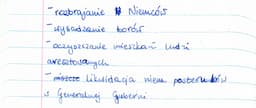 - rozbrajanie Niemców
- wysadzanie torów
- oczyszczanie mieszkań ludzi
aresztowanych
- likwidacja niem. posterunków
w Generalnej Guberni